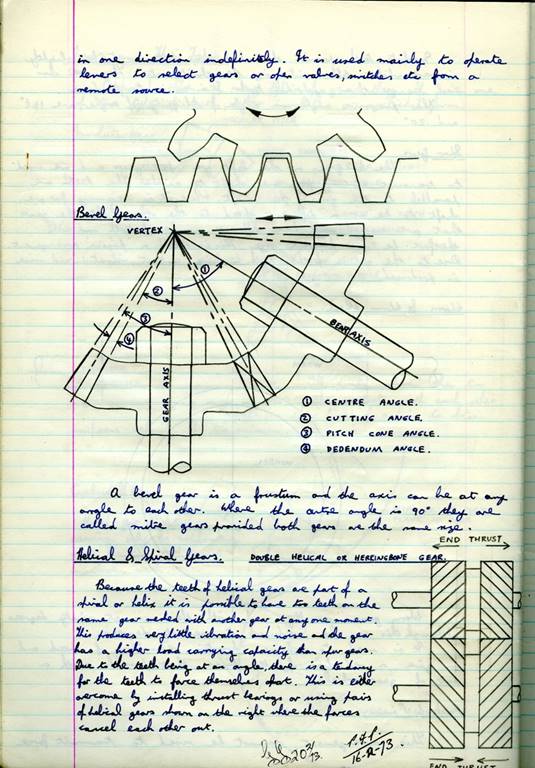 in one direction indefinitely. It is used mainly to operate
levers to select gears or open valves, switches etc from a
remote source.
Bevel Gears.
VERTEX
①
②
③
④
GEAR AXIS
GEAR AXIS
① CENTRE ANGLE.
② CUTTING ANGLE.
③ PITCH CONE ANGLE.
④ DEDENDUM ANGLE.
A bevel gear is a frustum and the axis can be at any
angle to each other. Where the centre angle is 90° they are
called mitre gears provided both gears are the same size.
Helical & Spiral Gears.
DOUBLE HELICAL OR HERRINGBONE GEAR.
END THRUST
Because the teeth of helical gears are part of a
spiral or helix it is possible to have two teeth on the
same gear meshed with another gear at any one moment.
This produces very little vibration and noise and the gear
has a higher load carrying capacity than spur gears.
Due to the teeth being at an angle, there is a tendancy
for the teeth to force themselves apart. This is either
overcome by installing thrust bearings or using pairs
of helical gears shown on the right where the forces
cancel each other out.
16-2-73.
END THRUST